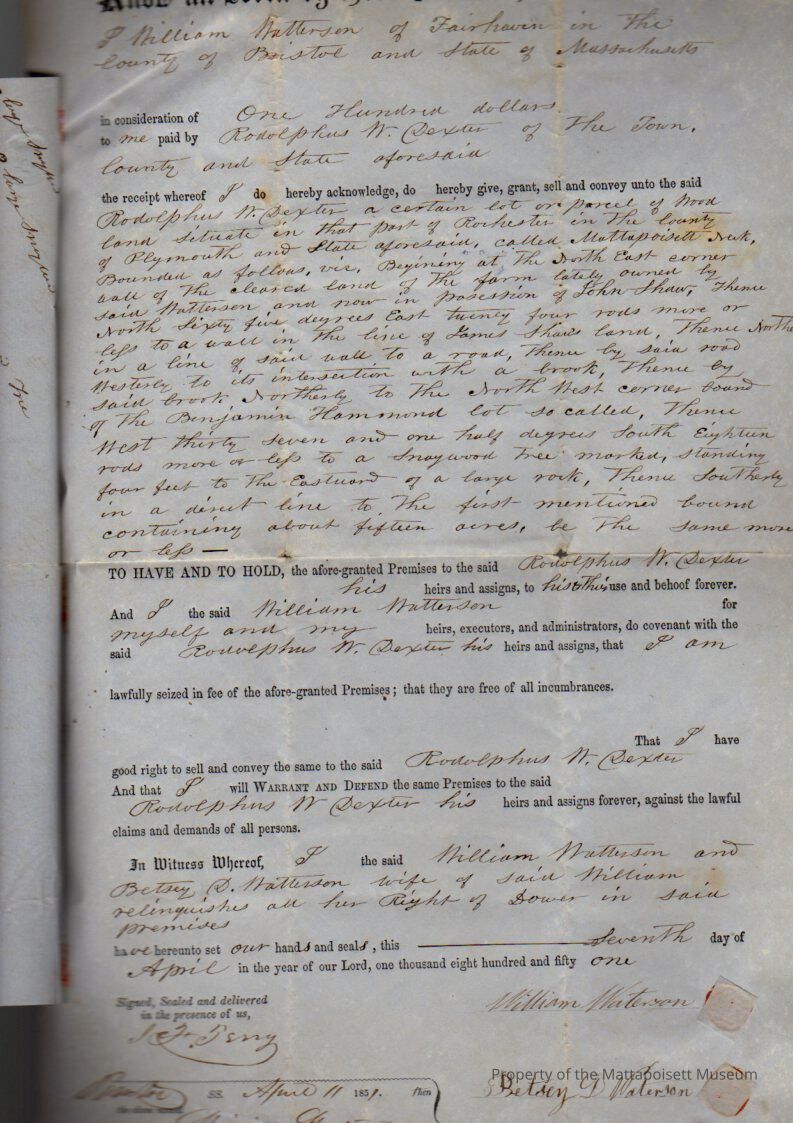 I William Watterson of Fairhaven in the
County of Bristol and State of Massachusetts
in consideration of One Hundred dollars
to me paid by Rodolphus W. Dexter of the Town,
County and State aforesaid
the receipt whereof I do hereby acknowledge, do hereby give, grant, sell and convey unto the said
Rodolphus W. Dexter a certain lot or parcel of Wood
land situate in that part of Rochester in the County
of Plymouth and State aforesaid, called Mattapoisett Neck,
Bounded as follows, viz, Begining at the North East corner
wall of the cleared land of the farm lately owned by
said Watterson and now in posession of John Shaw, Thence
North Sixty five degrees East twenty four rods more or
less to a wall in the line of James Shaws land, Thence North
in a line of said wall to a road, Thence by said road
Westerly to its intersection with a brook, Thence by
said brook Northerly to the North West corner bound
of the Benjamin Hammond lot so called, Thence
West thirty seven and one half degrees South Eighteen
rods more or less to a Snagwood Tree marked, standing
four feet to the Eastward of a large rock, Thence Southerly
in a direct line to the first mentioned bound
containing about fifteen acres, be the same more
or less —
TO HAVE AND TO HOLD, the afore-granted Premises to the said Rodolphus W. Dexter
his heirs and assigns, to his & their use and behoof forever.
And I the said William Watterson for
myself and my heirs, executors, and administrators, do covenant with the
said Rodolphus W. Dexter his heirs and assigns, that I am
lawfully seized in fee of the afore-granted Premises; that they are free of all incumbrances.
That I have
good right to sell and convey the same to the said Rodolphus W. Dexter
And that I will WARRANT AND DEFEND the same Premises to the said
Rodolphus W Dexter his heirs and assigns forever, against the lawful
claims and demands of all persons.
In Witness Whereof, I the said William Watterson and
Betsey D. Watterson wife of said William
relinquishes all her Right of Dower in said
premises
have hereunto set our hands and seals, this seventh day of
April in the year of our Lord, one thousand eight hundred and fifty one
Signed, Sealed and delivered
in the presence of us,
William Waterson
Perry
Property of the Mattapoisett Museum
SS. April 11 1851. Then
Betsey D Waterson